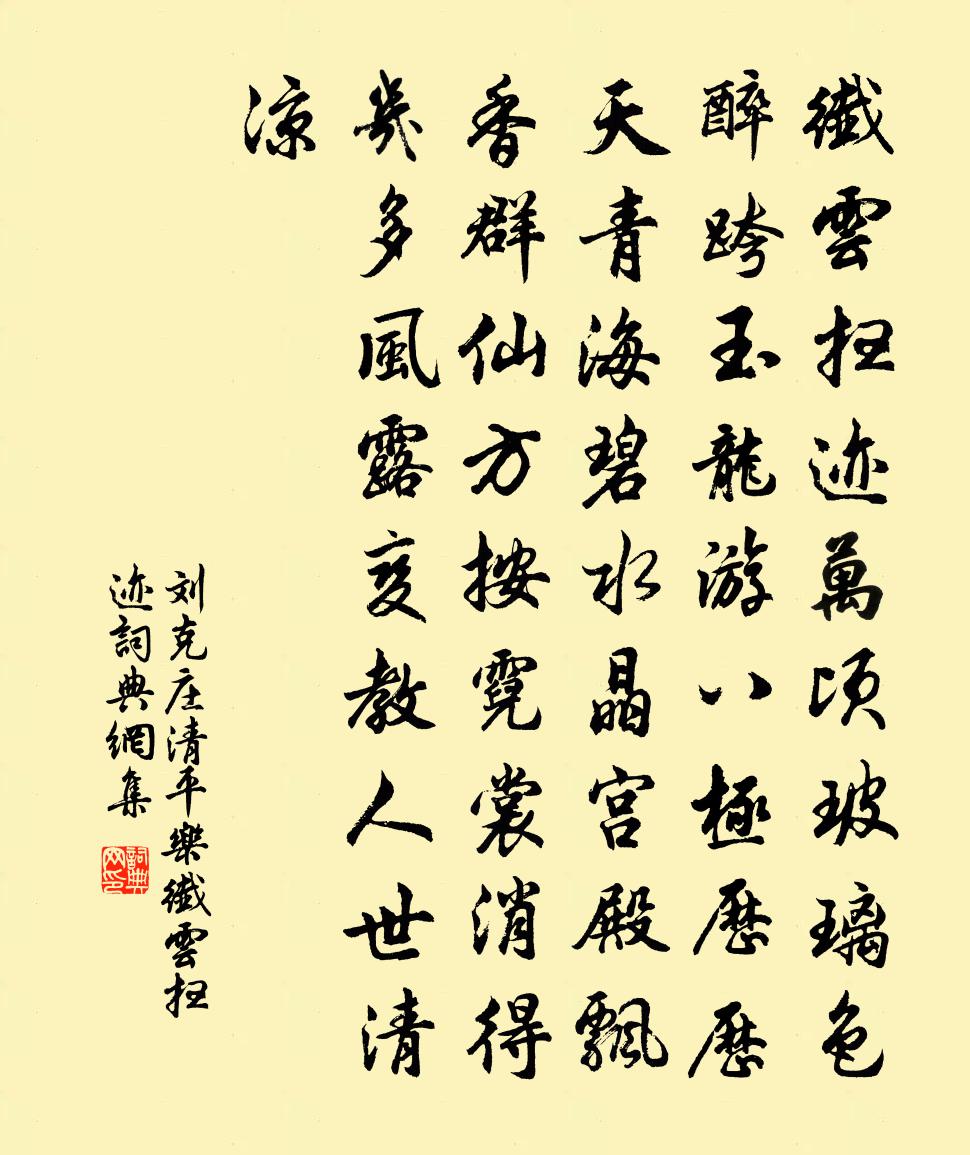 纖雲扫迹萬頃玻璃色
醉跨玉龍游八極歷歷
天青海碧水晶宫殿飄
香群仙方按霓裳消得
幾多風露变教人世清
凉
刘克庄清平樂纖雲扫
迹詞典網集
詞典网印